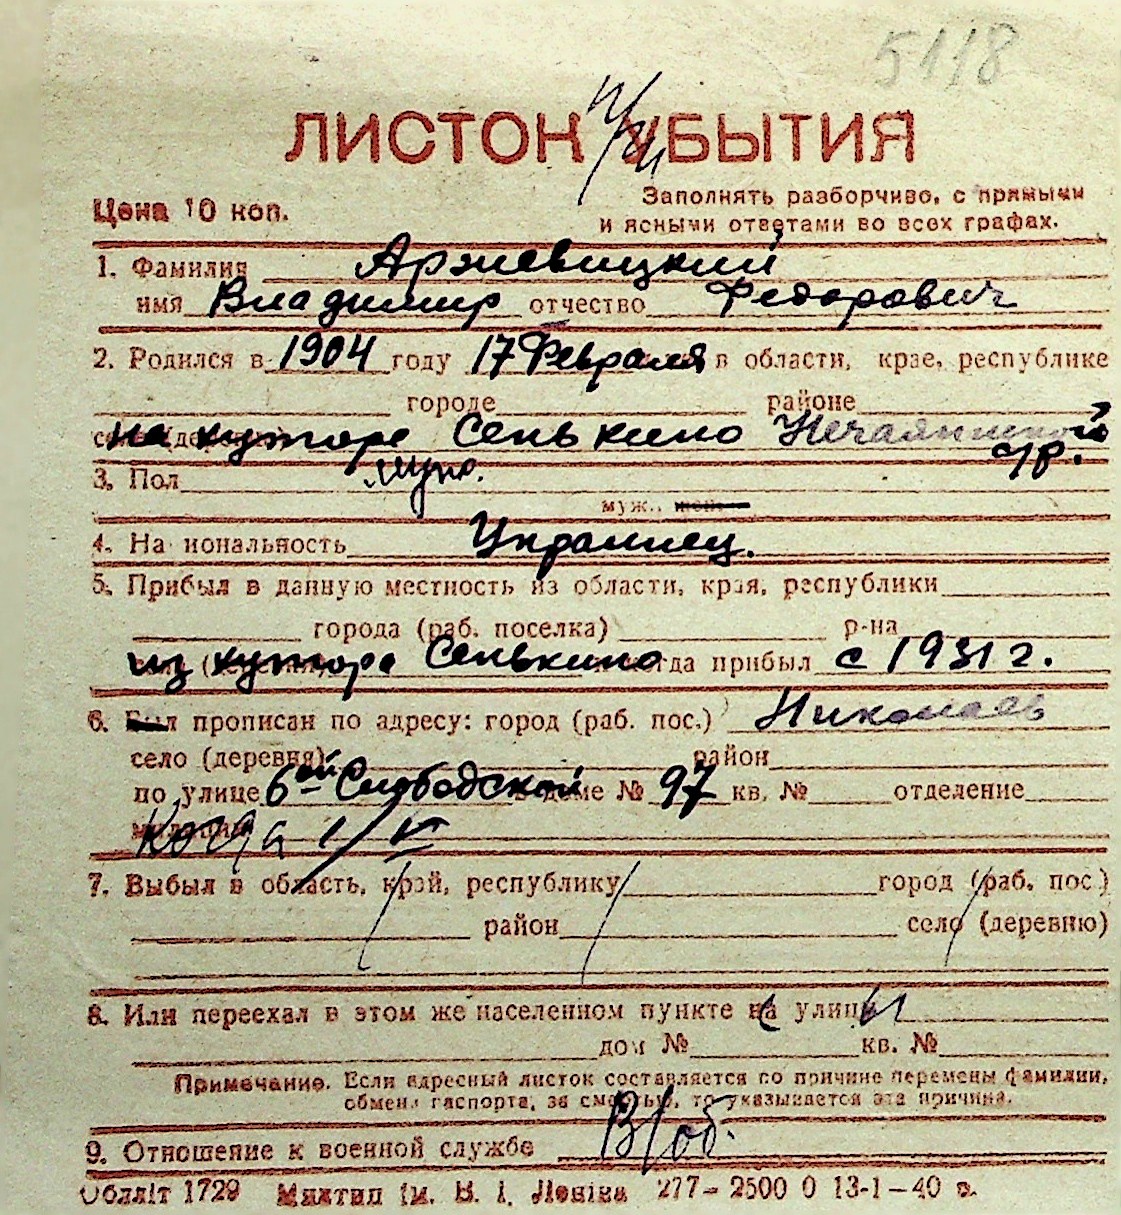 5118
ЛИСТОК УБЫТИЯ
Цена 10 коп.
Заполнять разборчиво, с прямыми
и ясными ответами во всех графах.
1. Фамилия Аржевицкий
имя Владимир отчество Федорович
2. Родился в 1904 году 17 Февраля в области, крае, республике
городе районе
на хуторе Сенькино Нечаянской
3. Пол муж.
муж.,
4. На иональность Украинец.
5. Прибыл в данную местность из области, края, республики
города (раб. поселка) р-на
из хутора Сенькино когда прибыл с 1931 г.
6. Был прописан по адресу: город (раб. пос.) Николаев
село (деревня) район
по улице 6ой Слободской в доме № 97 кв. № отделение
милиции Когда
7. Выбыл в область, край, республику город (раб. пос.)
район село (деревню)
8. Или переехал в этом же населенном пункте на улицу
дом № кв. №
Примечание. Если адресный листок составляется по причине перемены фамилии,
обмена паспорта, за смертью, то указывается эта причина.
9. Отношение к военной службе В/об.
Облліт 1729 Миктип ім. В. І. Леніна 277–2500 0 13-1–40 р.